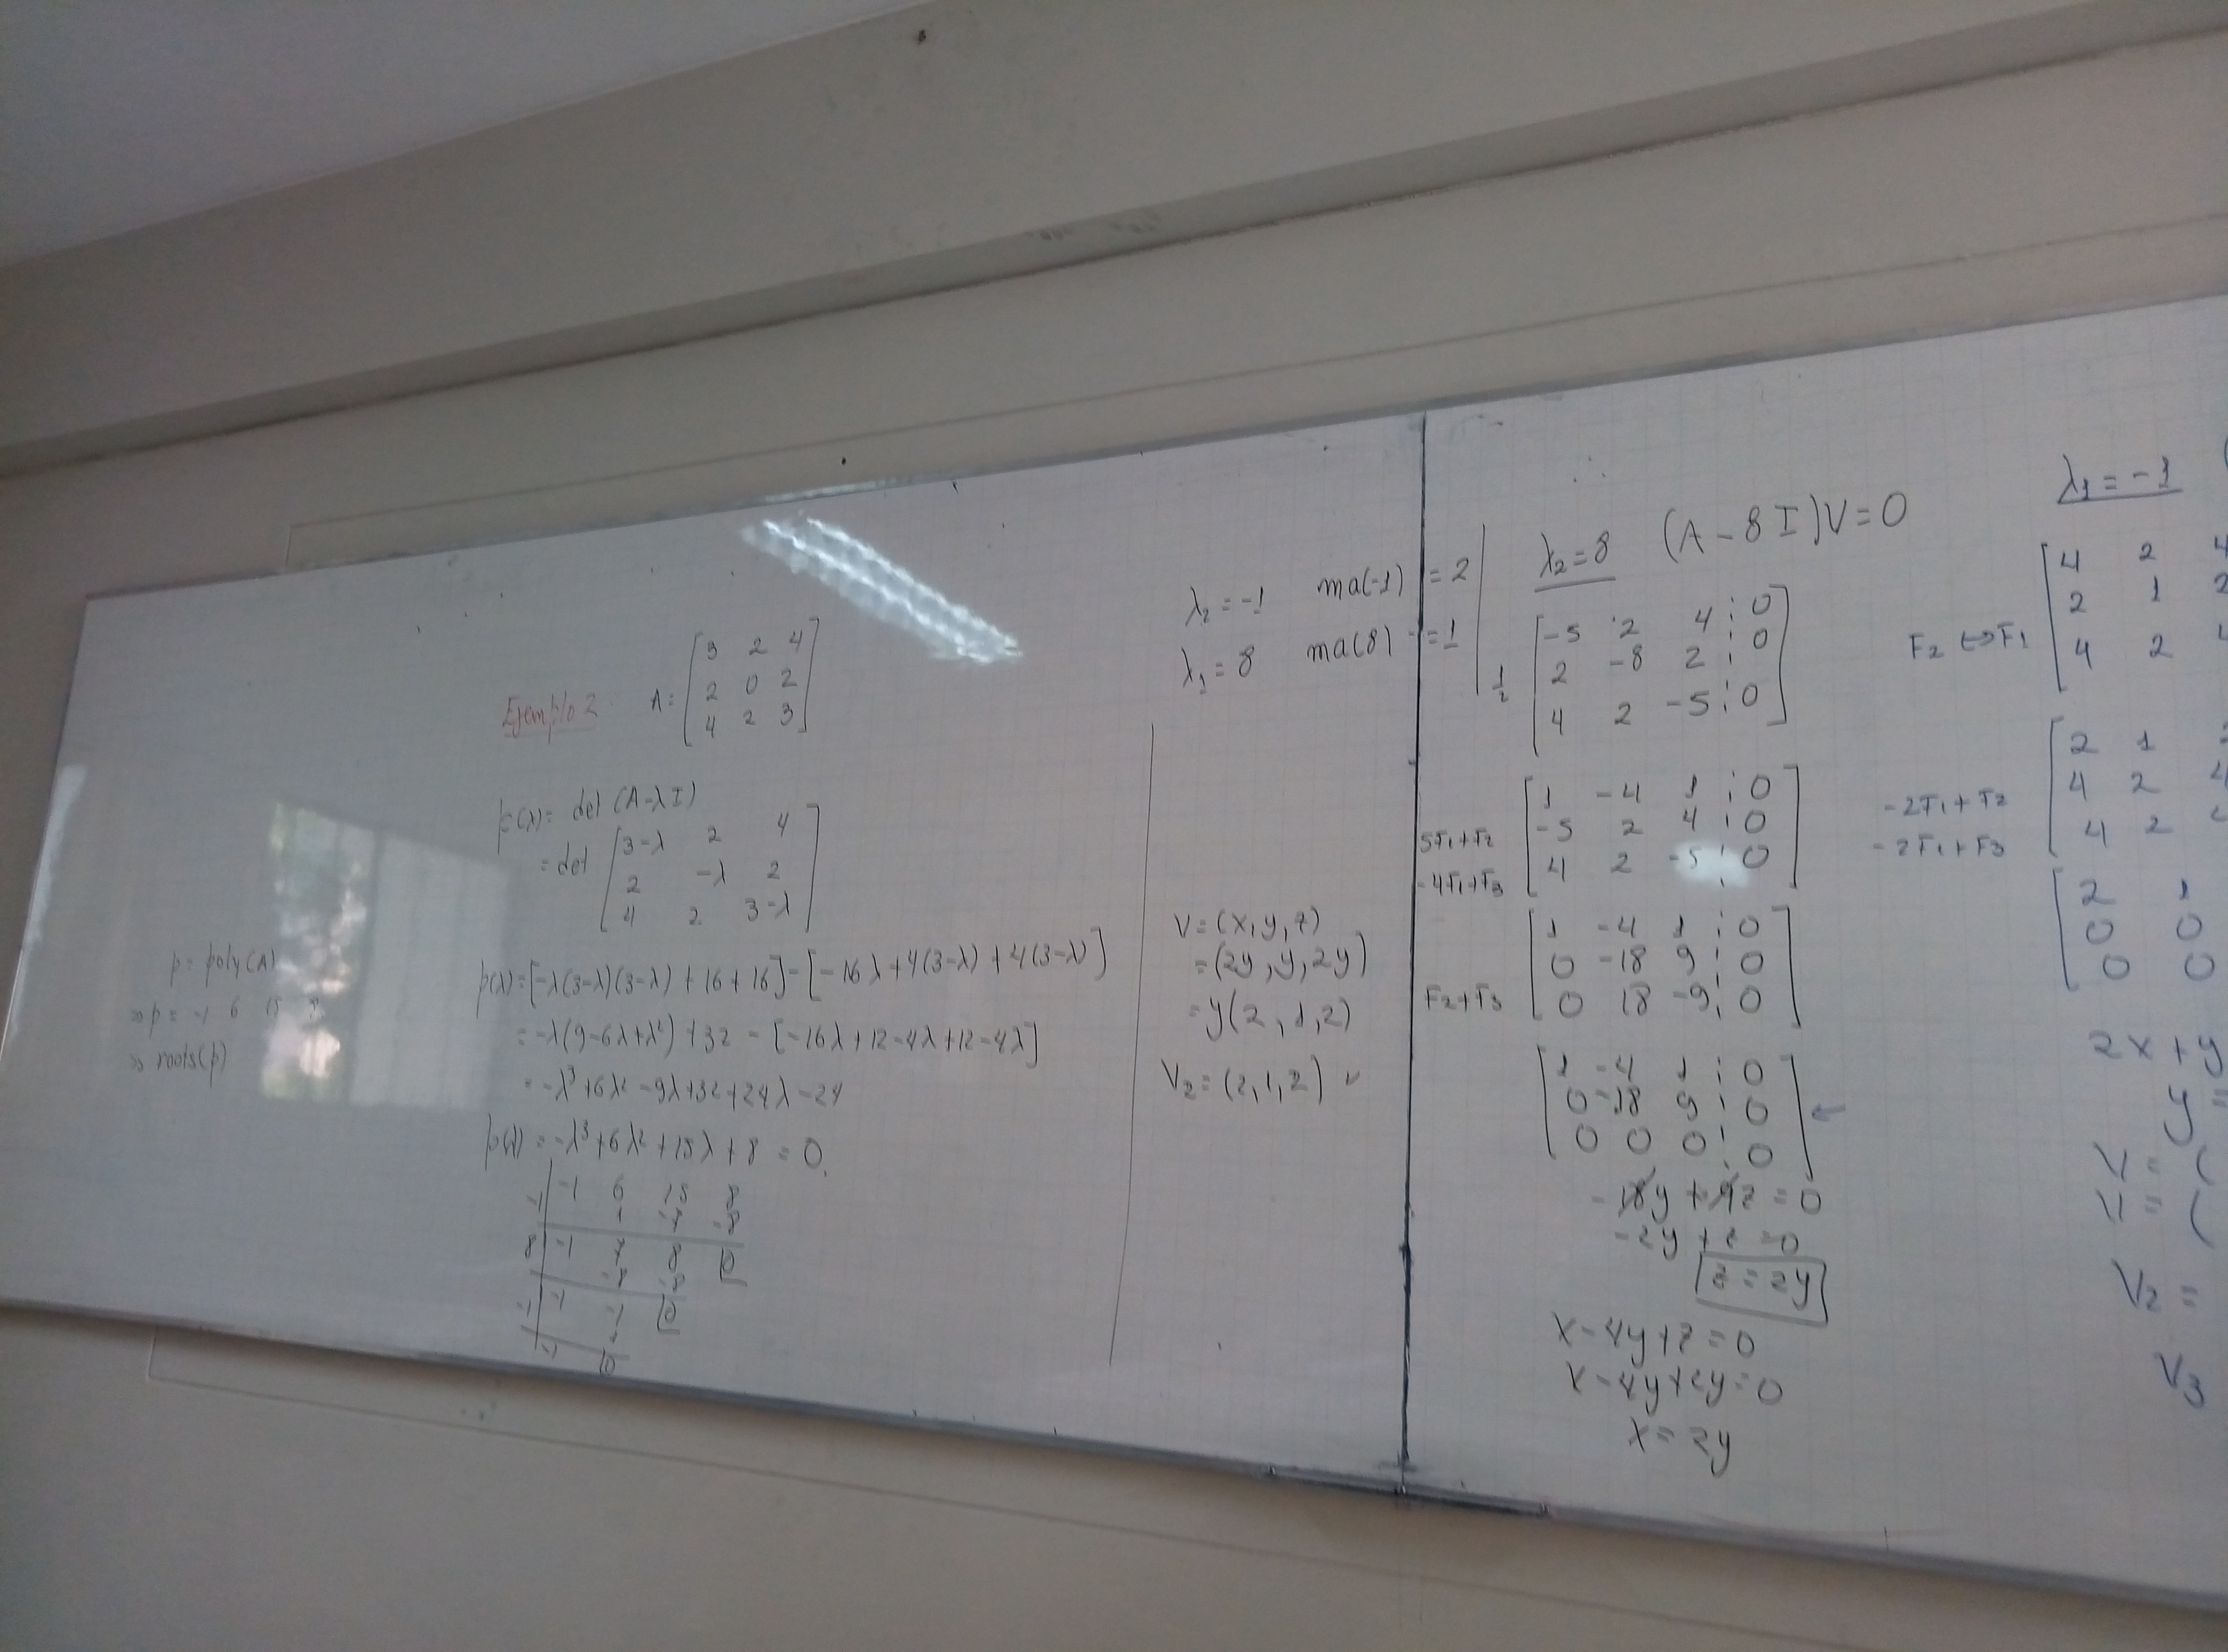 Ejemplo 2: A = [3 2 4
2 0 2
4 2 3]
p(λ) = det (A-λI)
= det [3-λ 2 4
2 -λ 2
4 2 3-λ]
p(λ) = [-λ(3-λ)(3-λ) + 16 + 16] - [-16λ + 4(3-λ) + 4(3-λ)]
= -λ(9-6λ+λ²) + 32 - [-16λ + 12 - 4λ + 12 - 4λ]
= -λ³ + 6λ² - 9λ + 32 + 24λ - 24
p(λ) = -λ³ + 6λ² + 15λ + 8 = 0.
-1 | -1 6 15 8
1 -7 -8
8 | -1 7 8 | 0
-8 -8
-1 | -1 -1 | 0
1
-1 | 0
p = poly(A)
⇒ p = -1 6 15 8
⇒ roots(p)
λ₂ = -1 ma(-1) = 2
λ₁ = 8 ma(8) = 1
V = (x, y, z)
= (2y, y, 2y)
= y(2, 1, 2)
V₂ = (2, 1, 2) ✓
λ₂ = 8 (A - 8I)V = 0
[-5 2 4 ⋮ 0
1/2 2 -8 2 ⋮ 0
4 2 -5 ⋮ 0]
[1 -4 1 ⋮ 0
5F₁+F₂ -5 2 4 ⋮ 0
-4F₁+F₃ 4 2 -5 ⋮ 0]
[1 -4 1 ⋮ 0
0 -18 9 ⋮ 0
F₂+F₃ 0 18 -9 ⋮ 0]
[1 -4 1 ⋮ 0
0 -18 9 ⋮ 0 ←
0 0 0 ⋮ 0]
-18y + 9z = 0
-2y + z = 0
z = 2y
x - 4y + z = 0
x - 4y + 2y = 0
x = 2y
λ₁ = -1 (
[4 2 4
2 1 2
F₂ ↔ F₁ 4 2 4
[2 1
-2F₁+F₂ 4 2 4
-2F₁+F₃ 4 2
[2 1
0 0
0 0
2x + y
y =
V = (
V = (
V₂ =
V₃